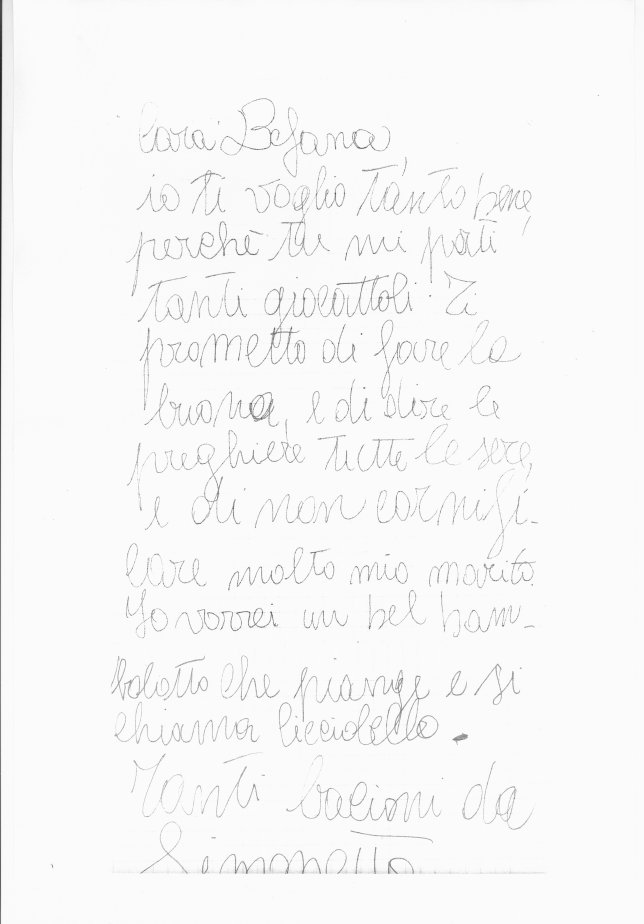 Cara Befana
io ti voglio tanto bene,
perchè tu mi porti
tanti giocattoli. Ti
prometto di fare la
buona, e di dire le
preghiere tutte le sere,
e di non cornifi-
care molto mio marito.
Io vorrei un bel bam-
bolotto che piange e si
chiama Cicciobello.
Tanti bacioni da
Simonetta